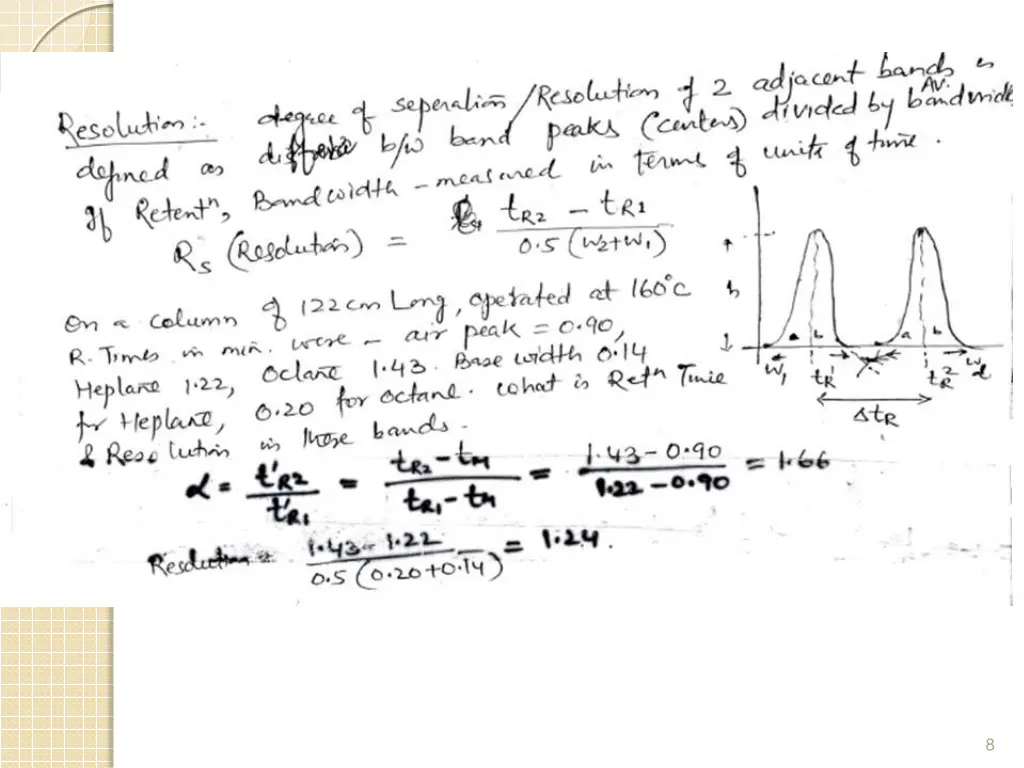 Resolution:- degree of seperation/Resolution of 2 adjacent bands is
defined as difference b/w band peaks (centers) divided by Av. bandwidth
If Retentⁿ, Bandwidth - measured in terms of units of time.
Rs (Resolution) = tR2 - tR1 / 0.5 (W2+W1)
On a column of 122 cm Long, operated at 160°C
R. Times in min. were - air peak = 0.90,
Heplane 1.22, Octane 1.43. Base width 0.14
for Heplane, 0.20 for octane. What is Retⁿ Time
& Resolution in these bands.
h
a b a b
W1 tR1 tR2 W2
ΔtR
α = t'R2 / t'R1 = tR2 - tM / tR1 - tM = 1.43 - 0.90 / 1.22 - 0.90 = 1.66
Resolution = 1.43 - 1.22 / 0.5 (0.20+0.14) = 1.24.
8